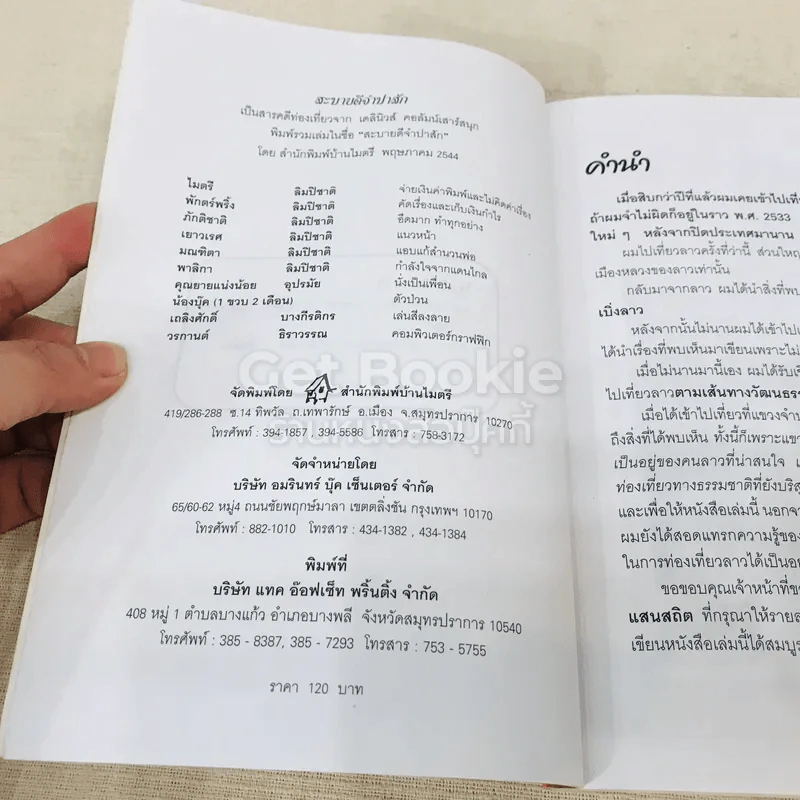 สะบายดีจำปาสัก
เป็นสารคดีท่องเที่ยวจาก เดลินิวส์ คอลัมน์เสาร์สนุก
พิมพ์รวมเล่มในชื่อ "สะบายดีจำปาสัก"
โดย สำนักพิมพ์บ้านไมตรี พฤษภาคม 2544
ไมตรี ลิมปิชาติ จ่ายเงินค่าพิมพ์และไม่คิดค่าเรื่อง
พักตร์พริ้ง ลิมปิชาติ คัดเรื่องและเก็บเงินกำไร
ภักติชาติ ลิมปิชาติ อืดมาก ทำทุกอย่าง
เยาวเรศ ลิมปิชาติ แนวหน้า
มณฑิตา ลิมปิชาติ แอบแก้สำนวนพ่อ
พาลิกา ลิมปิชาติ กำลังใจจากแดนไกล
คุณยายแน่งน้อย อุปรมัย นั่งเป็นเพื่อน
น้องบุ๊ค (1 ขวบ 2 เดือน) ตัวป่วน
เถลิงศักดิ์ บางกีรติกร เล่นสีลงลาย
วรกานต์ ธิราวรรณ คอมพิวเตอร์กราฟฟิก
Get Bookie
ร้านหนังสือบุ๊คกี้
จัดพิมพ์โดย สำนักพิมพ์บ้านไมตรี
419/286-288 ซ.14 ทิพวัล ถ.เทพารักษ์ อ.เมือง จ.สมุทรปราการ 10270
โทรศัพท์ : 394-1857 , 394-5586 โทรสาร : 758-3172
จัดจำหน่ายโดย
บริษัท อมรินทร์ บุ๊ค เซ็นเตอร์ จำกัด
65/60-62 หมู่4 ถนนชัยพฤกษ์มาลา เขตตลิ่งชัน กรุงเทพฯ 10170
โทรศัพท์ : 882-1010 โทรสาร : 434-1382 , 434-1384
พิมพ์ที่
บริษัท แทค อ๊อฟเซ็ท พริ้นติ้ง จำกัด
408 หมู่ 1 ตำบลบางแก้ว อำเภอบางพลี จังหวัดสมุทรปราการ 10540
โทรศัพท์ : 385 - 8387, 385 - 7293 โทรสาร : 753 - 5755
ราคา 120 บาท
คำนำ
เมื่อสิบกว่าปีที่แล้วผมเคยเข้าไปเที่
ถ้าผมจำไม่ผิดก็อยู่ในราว พ.ศ. 2533
ใหม่ ๆ หลังจากปิดประเทศมานาน
ผมไปเที่ยวลาวครั้งที่ว่านี้ ส่วนใหญ
เมืองหลวงของลาวเท่านั้น
กลับมาจากลาว ผมได้นำสิ่งที่พบ
เบิ่งลาว
หลังจากนั้นไม่นานผมได้เข้าไป
ได้นำเรื่องที่พบเห็นมาเขียนเพราะไม่
เมื่อไม่นานมานี้เอง ผมได้รับเ
ไปเที่ยวลาวตามเส้นทางวัฒนธร
เมื่อได้เข้าไปเที่ยวที่แขวงจำ
ถึงสิ่งที่ได้พบเห็น ทั้งนี้ก็เพราะแข
เป็นอยู่ของคนลาวที่น่าสนใจ
ท่องเที่ยวทางธรรมชาติที่ยังบริส
และเพื่อให้หนังสือเล่มนี้ นอกจา
ผมยังได้สอดแทรกความรู้ขอ
ในการท่องเที่ยวลาวได้เป็นอย
ขอขอบคุณเจ้าหน้าที่ข
แสนสถิต ที่กรุณาให้รายล
เขียนหนังสือเล่มนี้ได้สมบูร